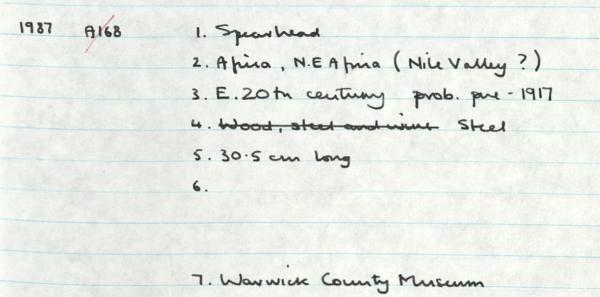 1987 A168 1. Spearhead
2. Africa, N.E Africa (Nile Valley ?)
3. E. 20th century prob. pre - 1917
4. Wood, steel and wire Steel
5. 30.5 cm long
6.
7. Warwick County Museum